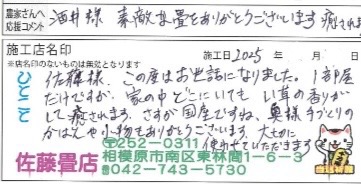 農家さんへ 酒井様 素敵な畳をありがとうございます 癒され
応援コメント
施工店名印 施工日 2025 年 月
※店名印のないものは無効となります
ひとこと
佐藤様、この度はお世話になりました。1部屋
だけですが、家の中どこにいても い草の香りが
して癒されます。さすが国産ですね、奥様手づくりの
かばんや小物もありがとうございます。大切に
使わせていただきます
〒252-0311
佐藤畳店 相模原市南区東林間1-6-3
☎042-743-5730